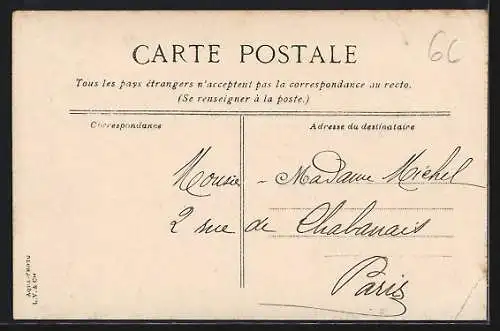 6C
CARTE POSTALE
Tous les pays étrangers n'acceptent pas la correspondance au recto.
(Se renseigner à la poste.)
Correspondance
Adresse du destinataire
Mousie - Madame Michel
2 rue de Chabanais
Paris
AQUA-PHOTO
L. V. & Cie